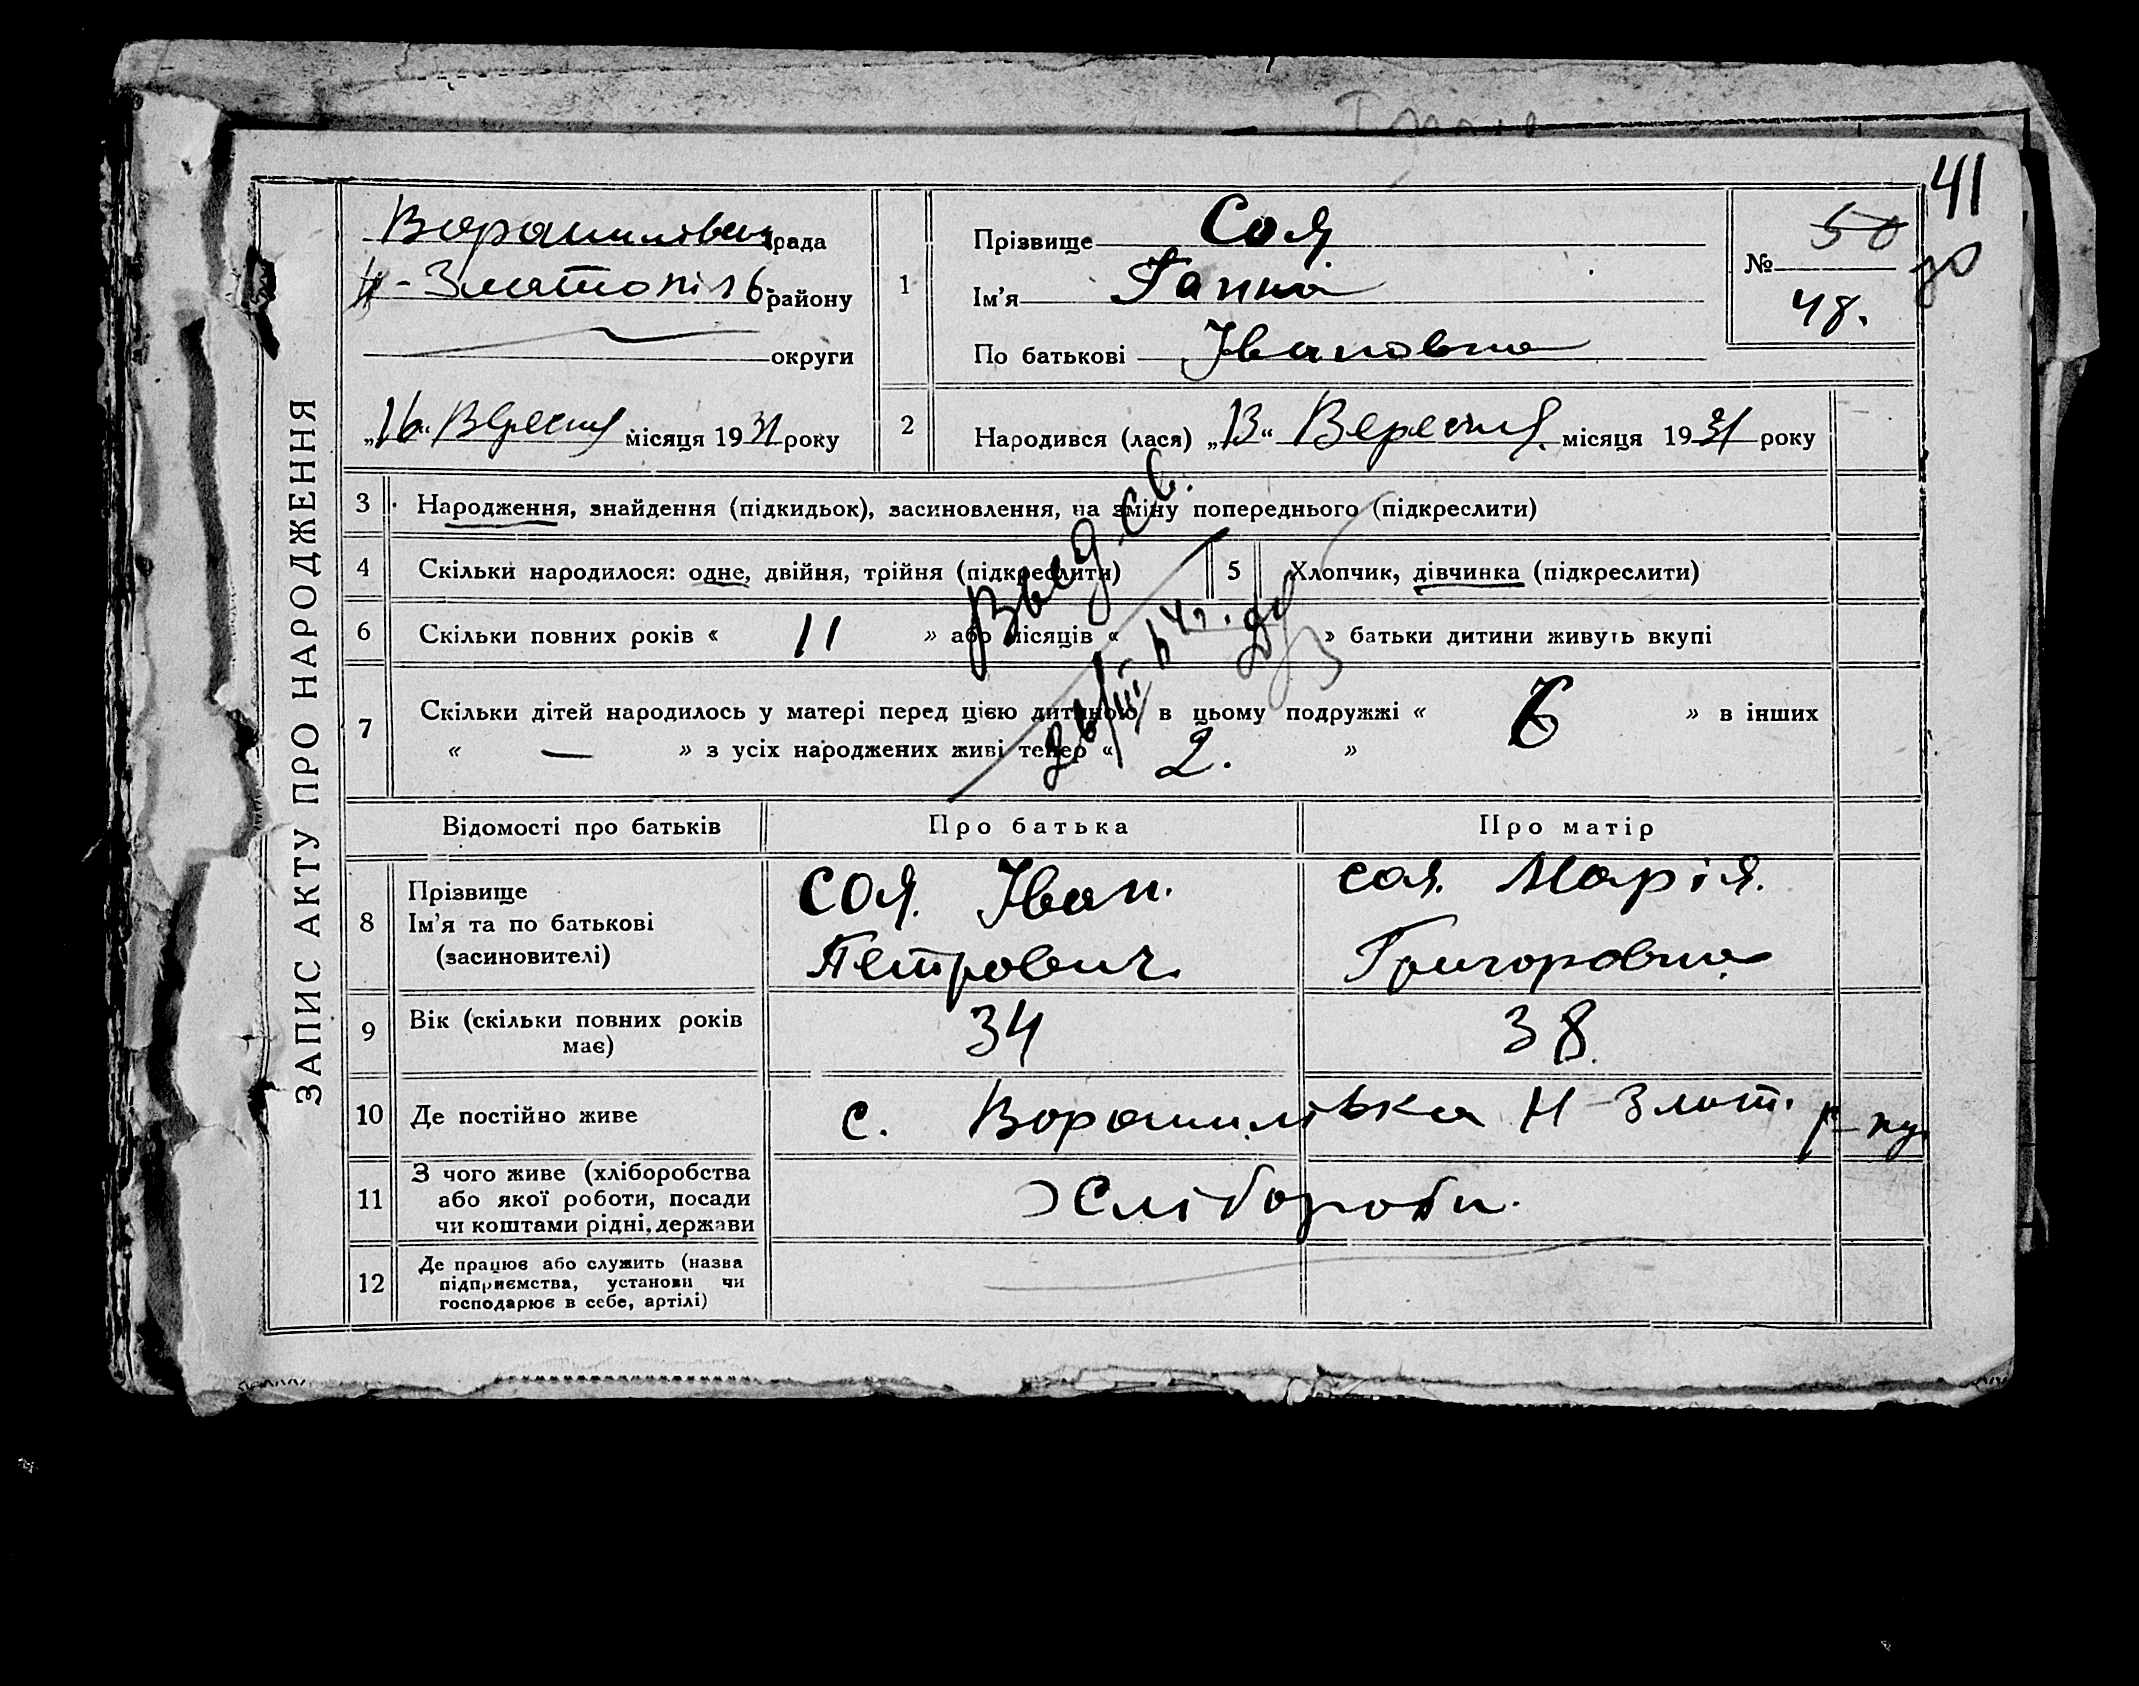 41
ЗАПИС АКТУ ПРО НАРОДЖЕННЯ
Ворошилівська рада
Н-Златопіль району
округи
„16“ Вересня місяця 1931 року
1
Прізвище Соя
Ім'я Ганна
По батькові Івановна
№ 50
48.
30
2
Народився (лася) „13“ Вересня місяця 1931 року
3 Народження, знайдення (підкидьок), засиновлення, на зміну попереднього (підкреслити)
4 Скільки народилося: одне, двійня, трійня (підкреслити)
5 Хлопчик, дівчинка (підкреслити)
6 Скільки повних років « 11 » або місяців « » батьки дитини живуть вкупі
7 Скільки дітей народилось у матері перед цією дитиною в цьому подружжі « 6 » в інших
« — » з усіх народжених живі тепер « 2. »
Выд. св.
26/III
Відомості про батьків Про батька Про матір
8 Прізвище
Ім'я та по батькові
(засиновителі)
Соя Іван.
Петрович.
Соя Марія.
Григоровна
9 Вік (скільки повних років
має)
34 38.
10 Де постійно живе
с. Ворошилівка Н-Злат. р-ну
11 З чого живе (хліборобства
або якої роботи, посади
чи коштами рідні, держави
Хлібороби.
12 Де працює або служить (назва
підприємства, установи чи
господарює в себе, артілі)